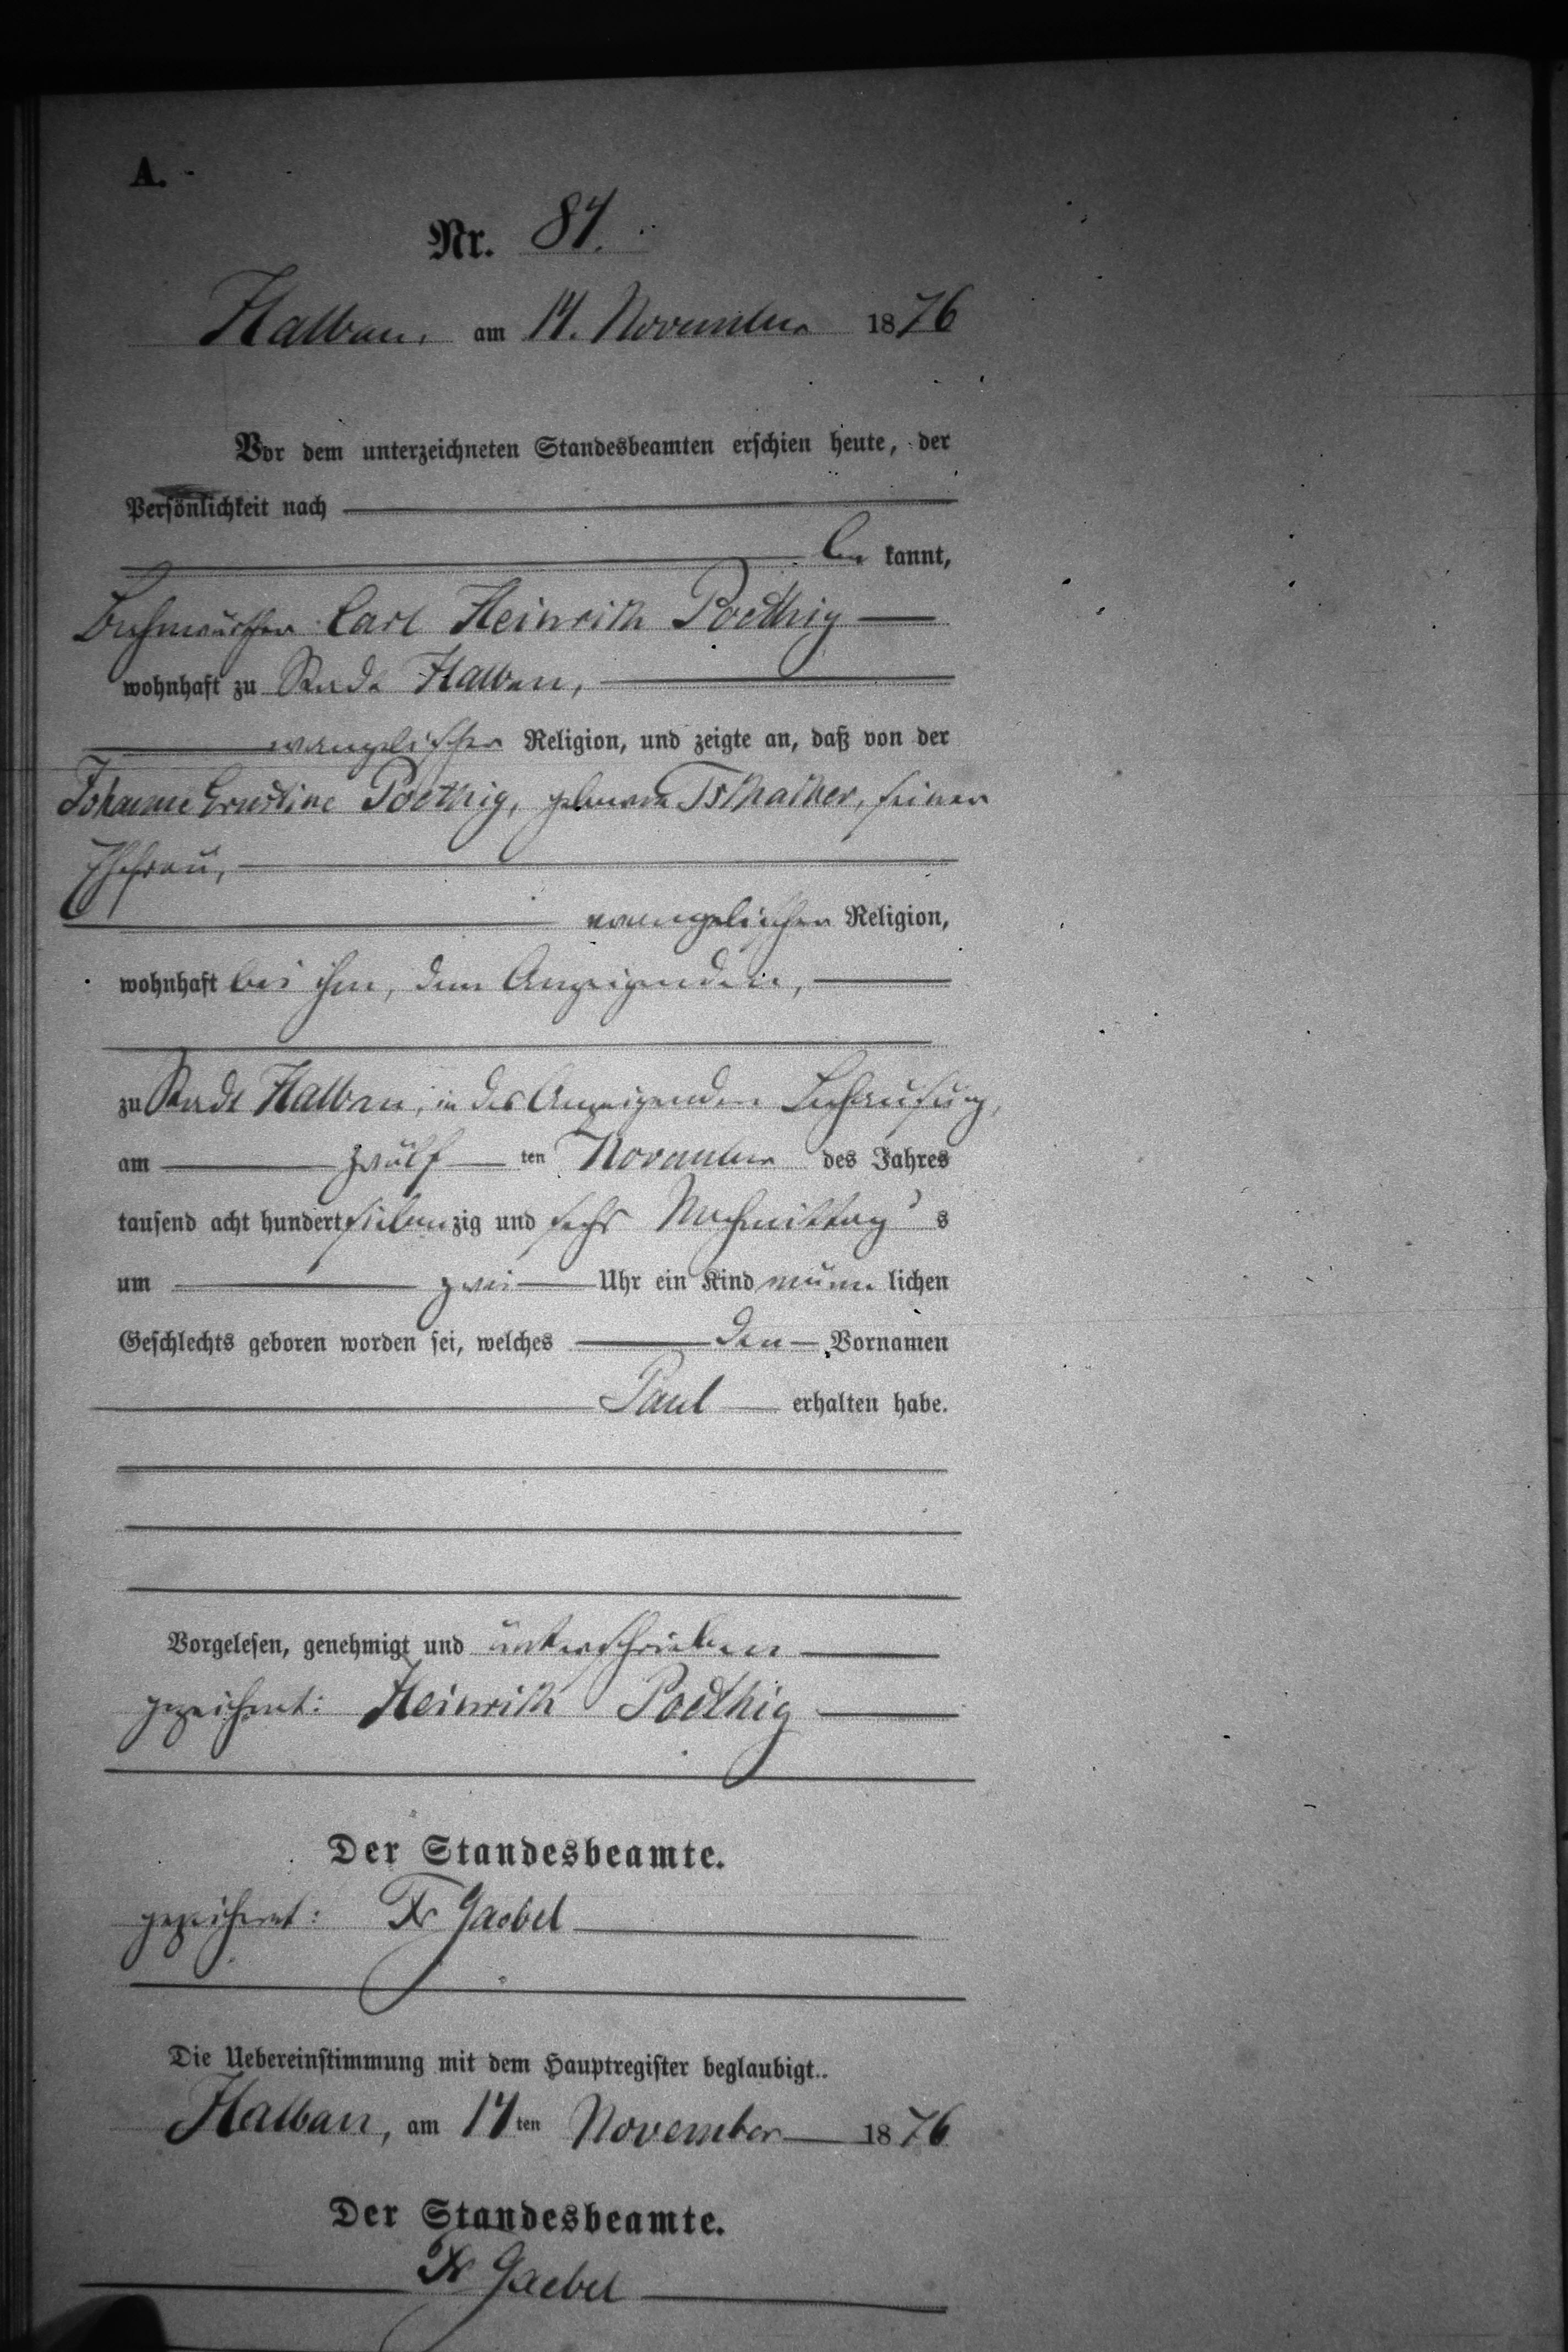 A.
Nr. 84.
Halbau, am 14. November 1876
Vor dem unterzeichneten Standesbeamten erschien heute, der
Persönlichkeit nach
be kannt,
Carl Heinrich Poethig
wohnhaft zu Stadt Halbau,
evangelischer Religion, und zeigte an, daß von der
Johanne Ernestine Poethig, geborene Tschacher, seiner
Ehefrau,
evangelischer Religion,
wohnhaft bei ihm, dem Anzeigenden,
zu Stadt Halbau, in des Anzeigenden Behausung,
am zwölf ten November des Jahres
tausend acht hundert siebenzig und sechs Nachmittag s
um zwei Uhr ein Kind männ lichen
Geschlechts geboren worden sei, welches den Vornamen
Paul erhalten habe.
Vorgelesen, genehmigt und unterschrieben
gezeichnet: Heinrich Poethig
Der Standesbeamte.
gezeichnet: Fr Gaebel
Die Uebereinstimmung mit dem Hauptregister beglaubigt..
Halbau, am 14ten November 1876
Der Standesbeamte.
Fr Gaebel